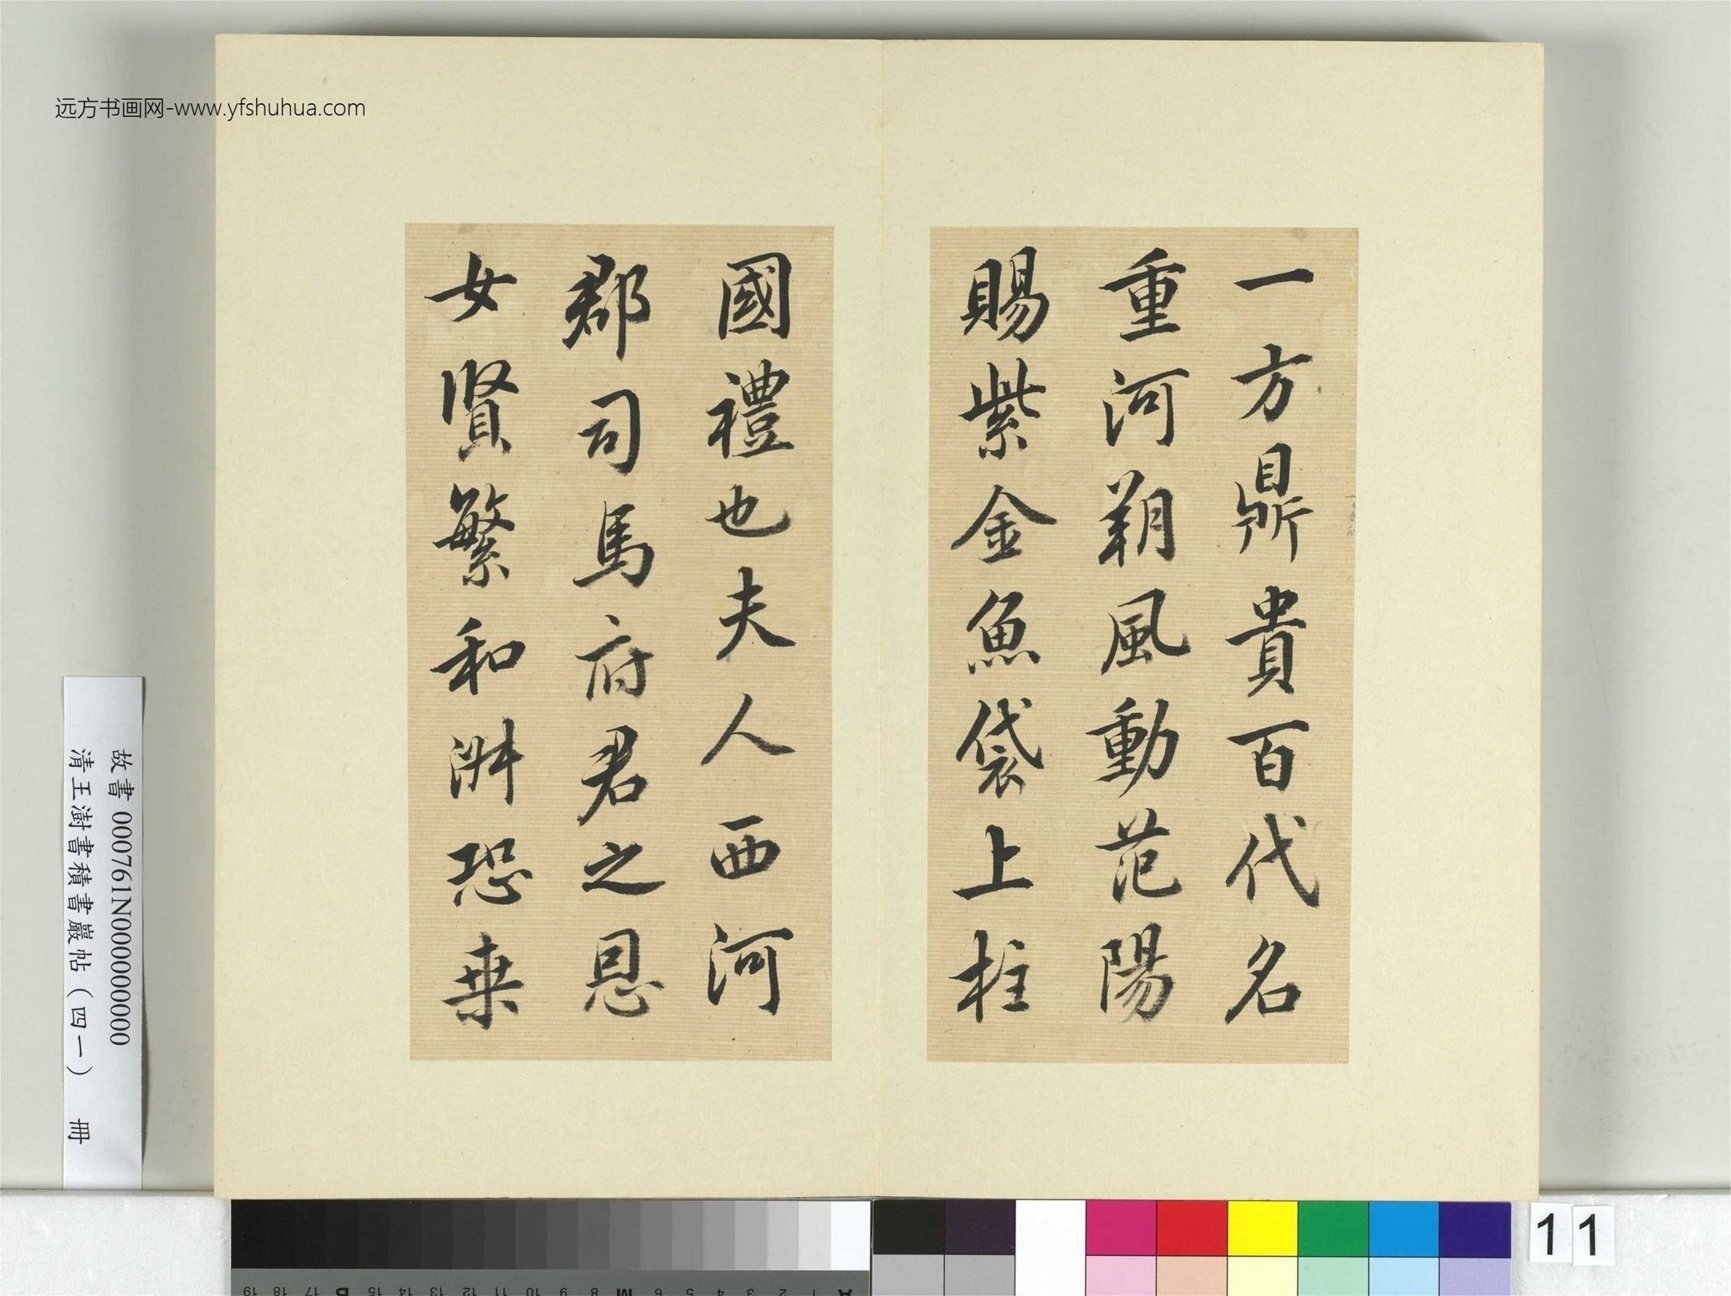 远方书画网-www.yfshuhua.com
一方鼎貴百代名
重河朔風動范陽
賜紫金魚袋上柱
國禮也夫人西河
郡司馬府君之恩
女賢繁和淋恐乗
故書 000761N000000000
清王澍書積書巖帖（四一） 冊
11